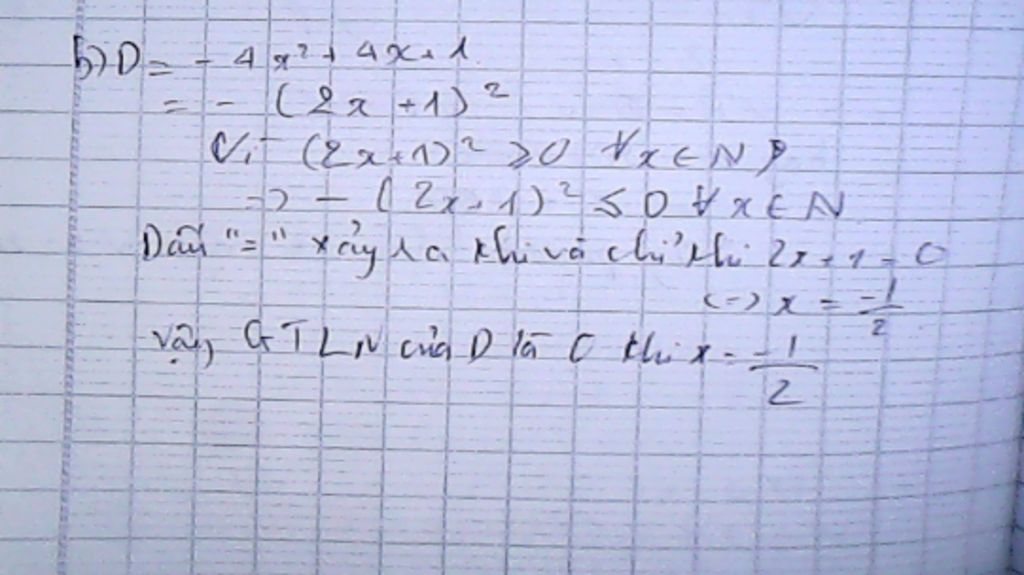 b) D = - 4x² + 4x + 1
= - (2x + 1)²
Vì (2x + 1)² ≥ 0 ∀x ∈ N
=> - (2x + 1)² ≤ 0 ∀x ∈ N
Dấu "=" xảy ra khi và chỉ khi 2x + 1 = 0
<=> x = -1/2
Vậy GTLN của D là 0 khi x = -1/2